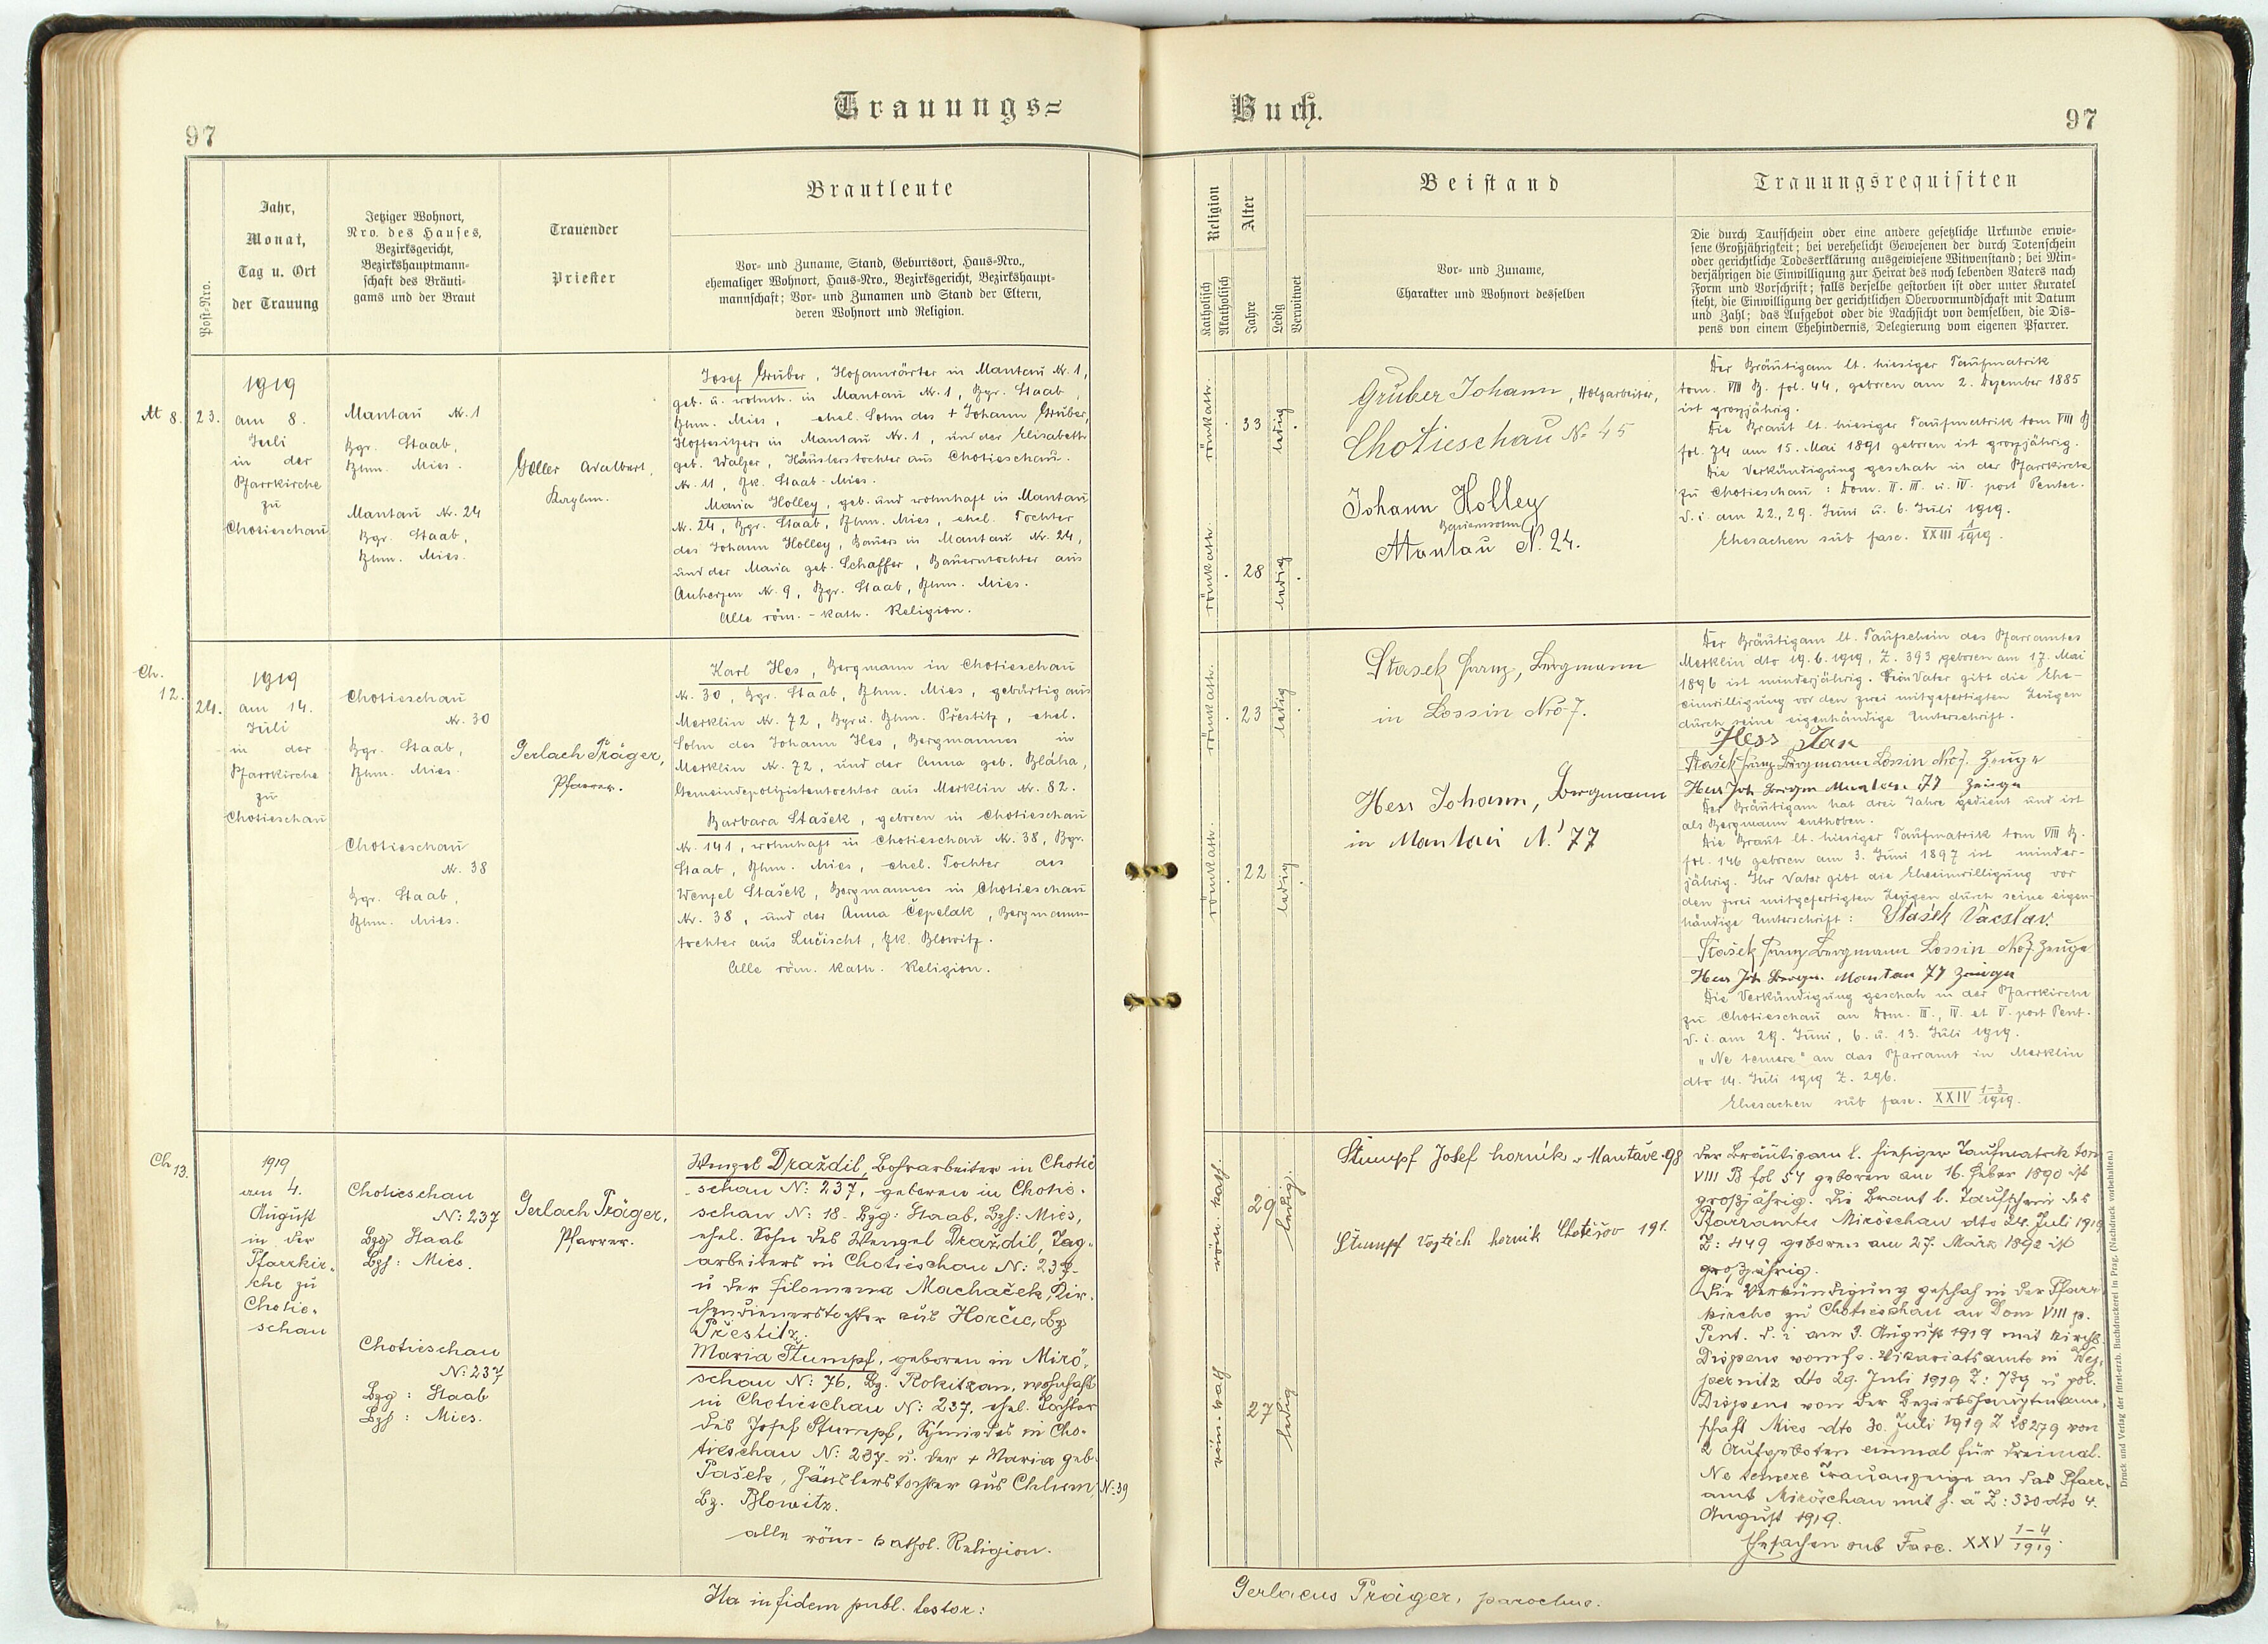 Trauungs=
97
Post=Nro.
Jahr,
Monat,
Tag u. Ort
der Trauung
Jetziger Wohnort,
Nro. des Hauses,
Bezirksgericht,
Bezirkshauptmann=
schaft des Bräuti=
gams und der Braut
Trauender
Priester
Brautleute
Vor= und Zuname, Stand, Geburtsort, Haus=Nro.,
ehemaliger Wohnort, Haus=Nro., Bezirksgericht, Bezirkshaupt=
mannschaft; Vor= und Zunamen und Stand der Eltern,
deren Wohnort und Religion.
Mt 8.
23.
1919
am 8.
Juli
in der
Pfarrkirche
zu
Chotieschau
Mantau Nr. 1
Bgr. Staab,
Bhm. Mies.
Mantau Nr. 24
Bgr. Staab,
Bhm. Mies.
Göller Adalbert,
Kaplan.
Josef Gruber, Hofanwärter in Mantau Nr. 1,
geb. u. wohnh. in Mantau Nr. 1, Bgr. Staab,
Bhm. Mies, ehel. Sohn des + Johann Gruber,
Hofbesitzers in Mantau Nr. 1, und der Elisabeth
geb. Walzer, Häuslerstochter aus Chotieschau.
Nr. 11, Bk. Staab-Mies.
Maria Holley, geb. und wohnhaft in Mantau
Nr. 24, Bgr. Staab, Bhm. Mies, ehel. Tochter
des Johann Holley, Bauers in Mantau Nr. 24,
und der Maria geb. Schaffer, Bauerntochter aus
Auherzen Nr. 9, Bgr. Staab, Bhm. Mies.
Alle röm. - kath. Religion.
Ch.
12.
24.
1919
am 14.
Juli
in der
Pfarrkirche
zu
Chotieschau
Chotieschau
Nr. 30
Bgr. Staab,
Bhm. Mies.
Chotieschau
Nr. 38
Bgr. Staab,
Bhm. Mies.
Gerlach Präger,
Pfarrer.
Karl Hes, Bergmann in Chotieschau
Nr. 30, Bgr. Staab, Bhm. Mies, gebürtig aus
Merklin Nr. 72, Bgr u. Bhm. Přestitz, ehel.
Sohn des Johann Hes, Bergmannes in
Merklin Nr. 72, und der Anna geb. Bláha,
Gemeindepolizistentochter aus Merklin Nr. 82.
Barbara Stašek, geboren in Chotieschau
Nr. 141, wohnhaft in Chotieschau Nr. 38, Bgr.
Staab, Bhm. Mies, ehel. Tochter des
Wenzel Stašek, Bergmannes in Chotieschau
Nr. 38, und der Anna Čepelak, Bergmann-
tochter aus Lučischt, Bk. Blowitz.
Alle röm. kath. Religion.
Ch.
13.
1919
am 4.
August
in der
Pfarrkir-
che zu
Chotie-
schau
Chotieschau
N: 237
Bzg Staab
Bzh: Mies.
Chotieschau
N: 237
Bzg: Staab
Bzh: Mies.
Gerlach Präger,
Pfarrer.
Wenzel Draždil, Bohrarbeiter in Chotie
schau N: 237, geboren in Chotie-
schau N: 18. Bzg: Staab, Bzh: Mies,
ehel. Sohn des Wenzel Draždil, Tag-
arbeiters in Chotieschau N: 237
u der Filomena Machaček, Kir-
chendienerstochter aus Horčic, Bz
Přestitz.
Maria Stumpf, geboren in Mirö-
schau N: 76, Bz. Rokitzan, wohnhaft
in Chotieschau N: 237, ehel. Tochter
des Josef Stumpf, Schmiedes in Cho-
tieschau N: 237 u. der + Maria geb.
Pašek, Häuslerstochter aus Chlum, N: 39
Bz. Blowitz.
alle röm- kathol. Religion.
Ita in fidem publ. testor:
Buch.
97
Religion
Katholisch
Akatholisch
Alter
Jahre
Ledig
Verwitwet
Beistand
Vor= und Zuname,
Charakter und Wohnort desselben
Trauungsrequisiten
Die durch Taufschein oder eine andere gesetzliche Urkunde erwie=
sene Großjährigkeit; bei verehelicht Gewesenen der durch Totenschein
oder gerichtliche Todeserklärung ausgewiesene Witwenstand; bei Min=
derjährigen die Einwilligung zur Heirat des noch lebenden Vaters nach
Form und Vorschrift; falls derselbe gestorben ist oder unter Kuratel
steht, die Einwilligung der gerichtlichen Obervormundschaft mit Datum
und Zahl; das Aufgebot oder die Nachsicht von demselben, die Dis=
pens von einem Ehehindernis, Delegierung vom eigenen Pfarrer.
römkath.
33
ledig
römkath.
28
ledig
Gruber Johann, Holzarbeiter,
Chotieschau No 45
Johann Holley
Bauernsohn
Mantau N. 24.
Der Bräutigam lt. hiesiger Taufmatrik
tom. VIII B. fol. 44, geboren am 2. Dezember 1885
ist grozjährig.
Die Braut lt. hiesiger Taufmatrik tom VIII B
fol. 74 am 15. Mai 1891 geboren ist grozjährig.
Die Verkündigung geschah in der Pfarrkirche
zu Chotieschau: Dom. II. III. u. IV. post Pentec.
d. i. am 22., 29. Juni u. 6. Juli 1919.
Ehesachen sub fasc. XXIII 1/1919.
römkath.
23
ledig
römkath.
22
ledig
Stasek Franz, Bergmann
in Lossin Nro 7.
Hess Johann, Bergmann
in Mantau N. 77
Der Bräutigam lt. Taufschein des Pfarramtes
Merklin dto 19. 6. 1919, Z. 393 geboren am 17. Mai
1896 ist minderjährig. Sein Vater gibt die Ehe-
einwilligung vor den zwei mitgefertigten Zeugen
durch seine eigenhändige Unterschrift.
Hess Jan
Stašek Franz Bergmann Lossin No 7. Zeuge
Hess Joh Bergm Mantau 77 Zeuge
Der Bräutigam hat drei Jahre gedient und ist
als Bergmann enthoben.
Die Braut lt. hiesiger Taufmatrik tom VIII B.
fol. 146 geboren am 3. Juni 1897 ist minder-
jährig. Ihr Vater gibt die Eheeinwilligung vor
den zwei mitgefertigten Zeugen durch seine eigen-
händige Unterschrift: Stašek Václav.
Stašek Franz Bergmann Lossin No 7 Zeuge
Hess Joh Bergm. Mantau 77 Zeuge
Die Verkündigung geschah in der Pfarrkirche
zu Chotieschau an Dom. III., IV. et V. post Pent.
d. i. am 29. Juni, 6. u. 13. Juli 1919.
"Ne temere" an das Pfarramt in Merklin
dto 14. Juli 1919 Z. 296.
Ehesachen sub fasc. XXIV 1-3/1919.
röm. kath.
29
ledig.
röm- kath
27
ledig
Stumpf Josef horník v Mantavě 98
Stumpf Vojtěch horník Chotěšov 191.
Der Bräutigam l. hiesiger Taufmatrik tom
VIII B fol 57 geboren am 16. Feber 1890 ist
großjährig. Die Braut l. Taufschein des
Pfarramtes Miröschau dto 24. Juli 1919
Z: 449 geboren am 27. März 1892 ist
großjährig.
Die Verkündigung geschah in der Pfarr
kirche zu Chotieschau an Dom VIII p.
Pent. d. i am 3. August 1919 mit kirchl.
Dispens vom f. e. Vikariatsamte in Wej-
pernitz dto 29. Juli 1919 Z: 739 u pol.
Dispens von der Bezirkshauptmann-
schaft Mies dto 30. Juli 1919 Z 28279 von
2 Aufgeboten einmal für dreimal.
Ne temere Trauanzeige an das Pfarr-
amt Miröschau mit h. ä Z: 330 dto 4.
August 1919.
Ehesachen sub Fasc. XXV 1-4/1919.
Druck und Verlag der fürst-erzb. Buchdruckerei in Prag. (Nachdruck vorbehalten.)
Gerlacus Präger, parochus.